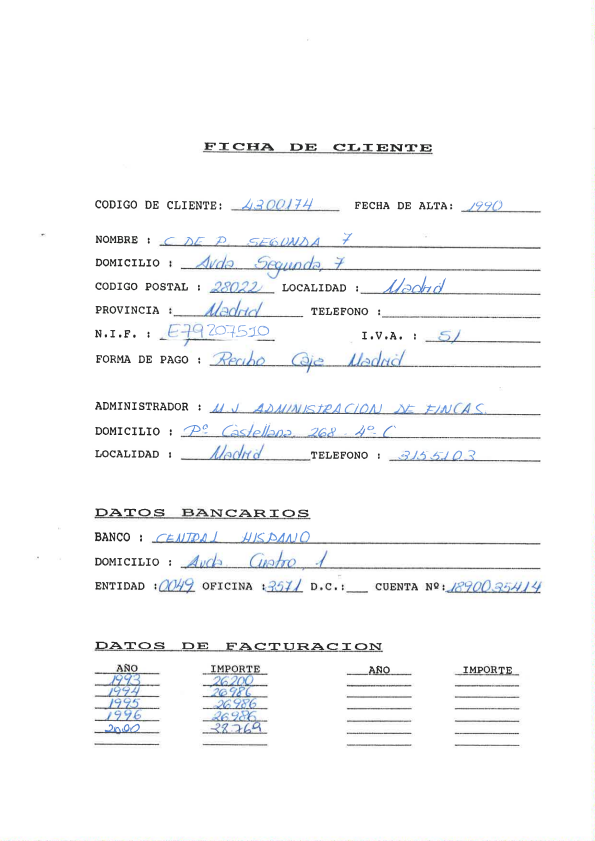 FICHA DE CLIENTE
CODIGO DE CLIENTE: 4300174 FECHA DE ALTA: 1990
NOMBRE : C DE P. SEGUNDA 7
DOMICILIO : Avda. Segunda, 7
CODIGO POSTAL : 28022 LOCALIDAD : Madrid
PROVINCIA : Madrid TELEFONO :
N.I.F. : E79207510 I.V.A. : S/
FORMA DE PAGO : Recibo Caja Madrid
ADMINISTRADOR : M J ADMINISTRACION DE FINCAS.
DOMICILIO : Pº Castellana, 268 - 4º C
LOCALIDAD : Madrid TELEFONO : 3155103
DATOS BANCARIOS
BANCO : CENTRAL HISPANO
DOMICILIO : Avda Cuatro, 1
ENTIDAD : 0049 OFICINA : 3571 D.C.: CUENTA Nº: 1890035414
DATOS DE FACTURACION
AÑO IMPORTE AÑO IMPORTE
1993 26200
1994 26986
1995 26986
1996 26986
2000 28.769